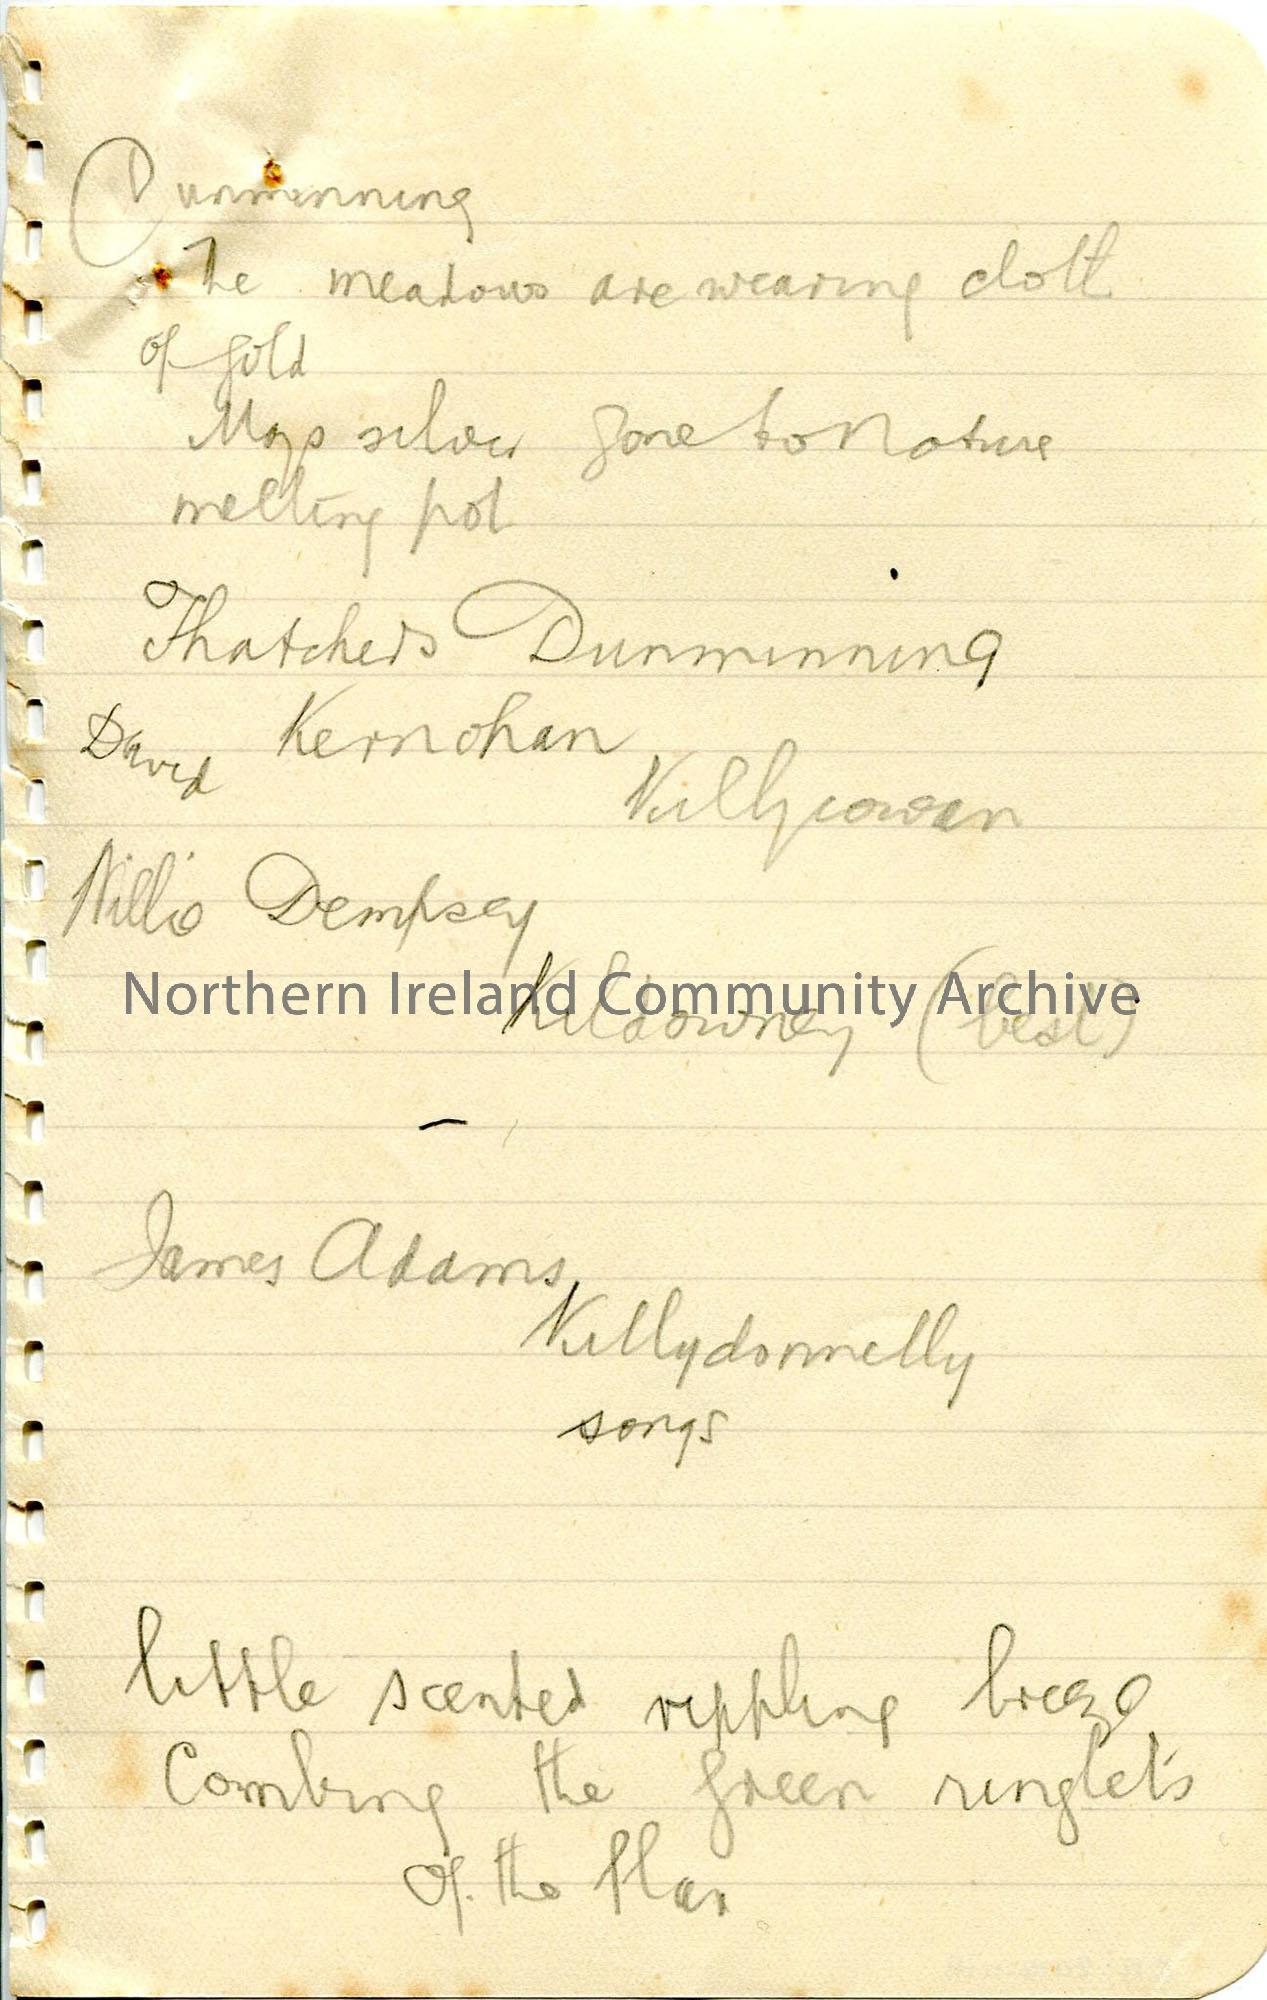 Dunminning
The meadows are wearing cloth
of gold
Mays silver gone to Nature
melting pot
Thatchers Dunminning
David Kernohan
Killycowan
Willie Dempsey
Northern Ireland Community Archive
Kildowney (best)
James Adams
Killydonnelly
songs
little scented rippling breeze
Combing the green ringlets
of the flax